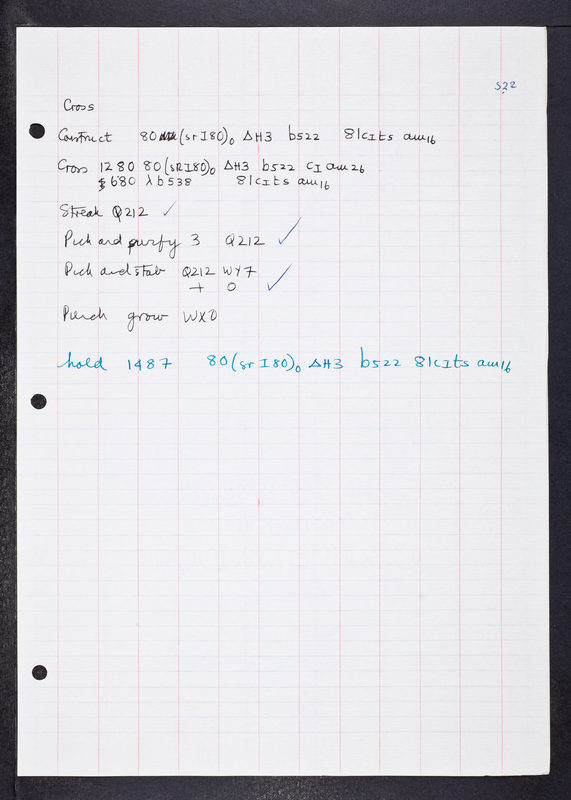 522
Cross
Construct 80 (sr I80)₀ ΔH3 b522 8lcIts am16
Cross 1280 80(sRI80)₀ ΔH3 b522 CI am26
680 λ b538 8lcIts am16
Streak Q212 ✓
Pick and purify 3 Q212 ✓
Pick and stab Q212 WY7
+ O ✓
grow WXO
hold 1487 80(sr I80)₀ ΔH3 b522 8lcIts am16